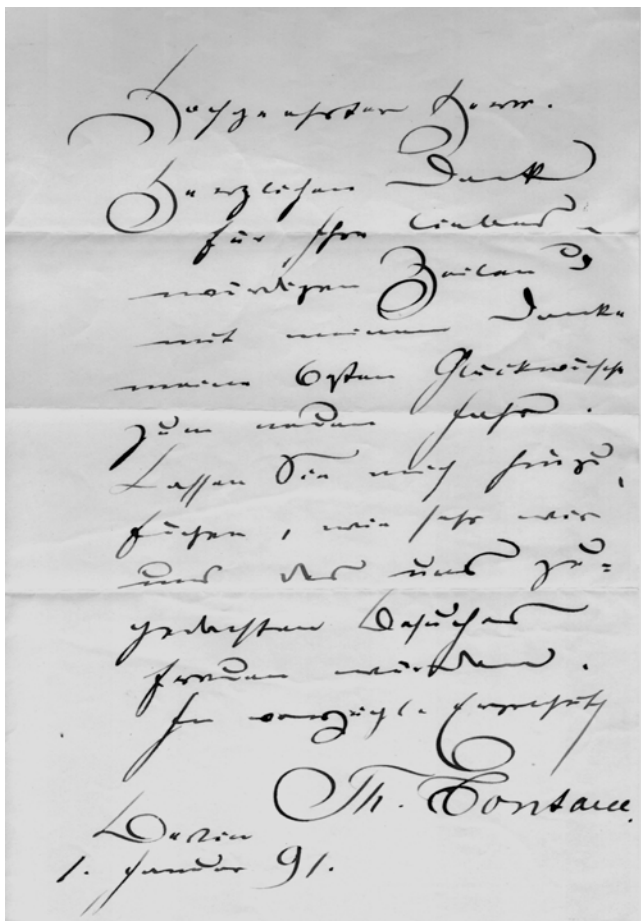 Hochgeehrter Herr.
Herzlichen Dank
für Ihre liebens-
würdigen Zeilen u
mit meinem Danke
meine besten Glückwünsche
zum neuen Jahr.
Lassen Sie mich hinzu
fügen, wie sehr wir
uns des uns zu=
gedachten Besuches
freuen würden.
In vorzügl. Ergebenheit
Th. Fontane.
Berlin
1. Januar 91.